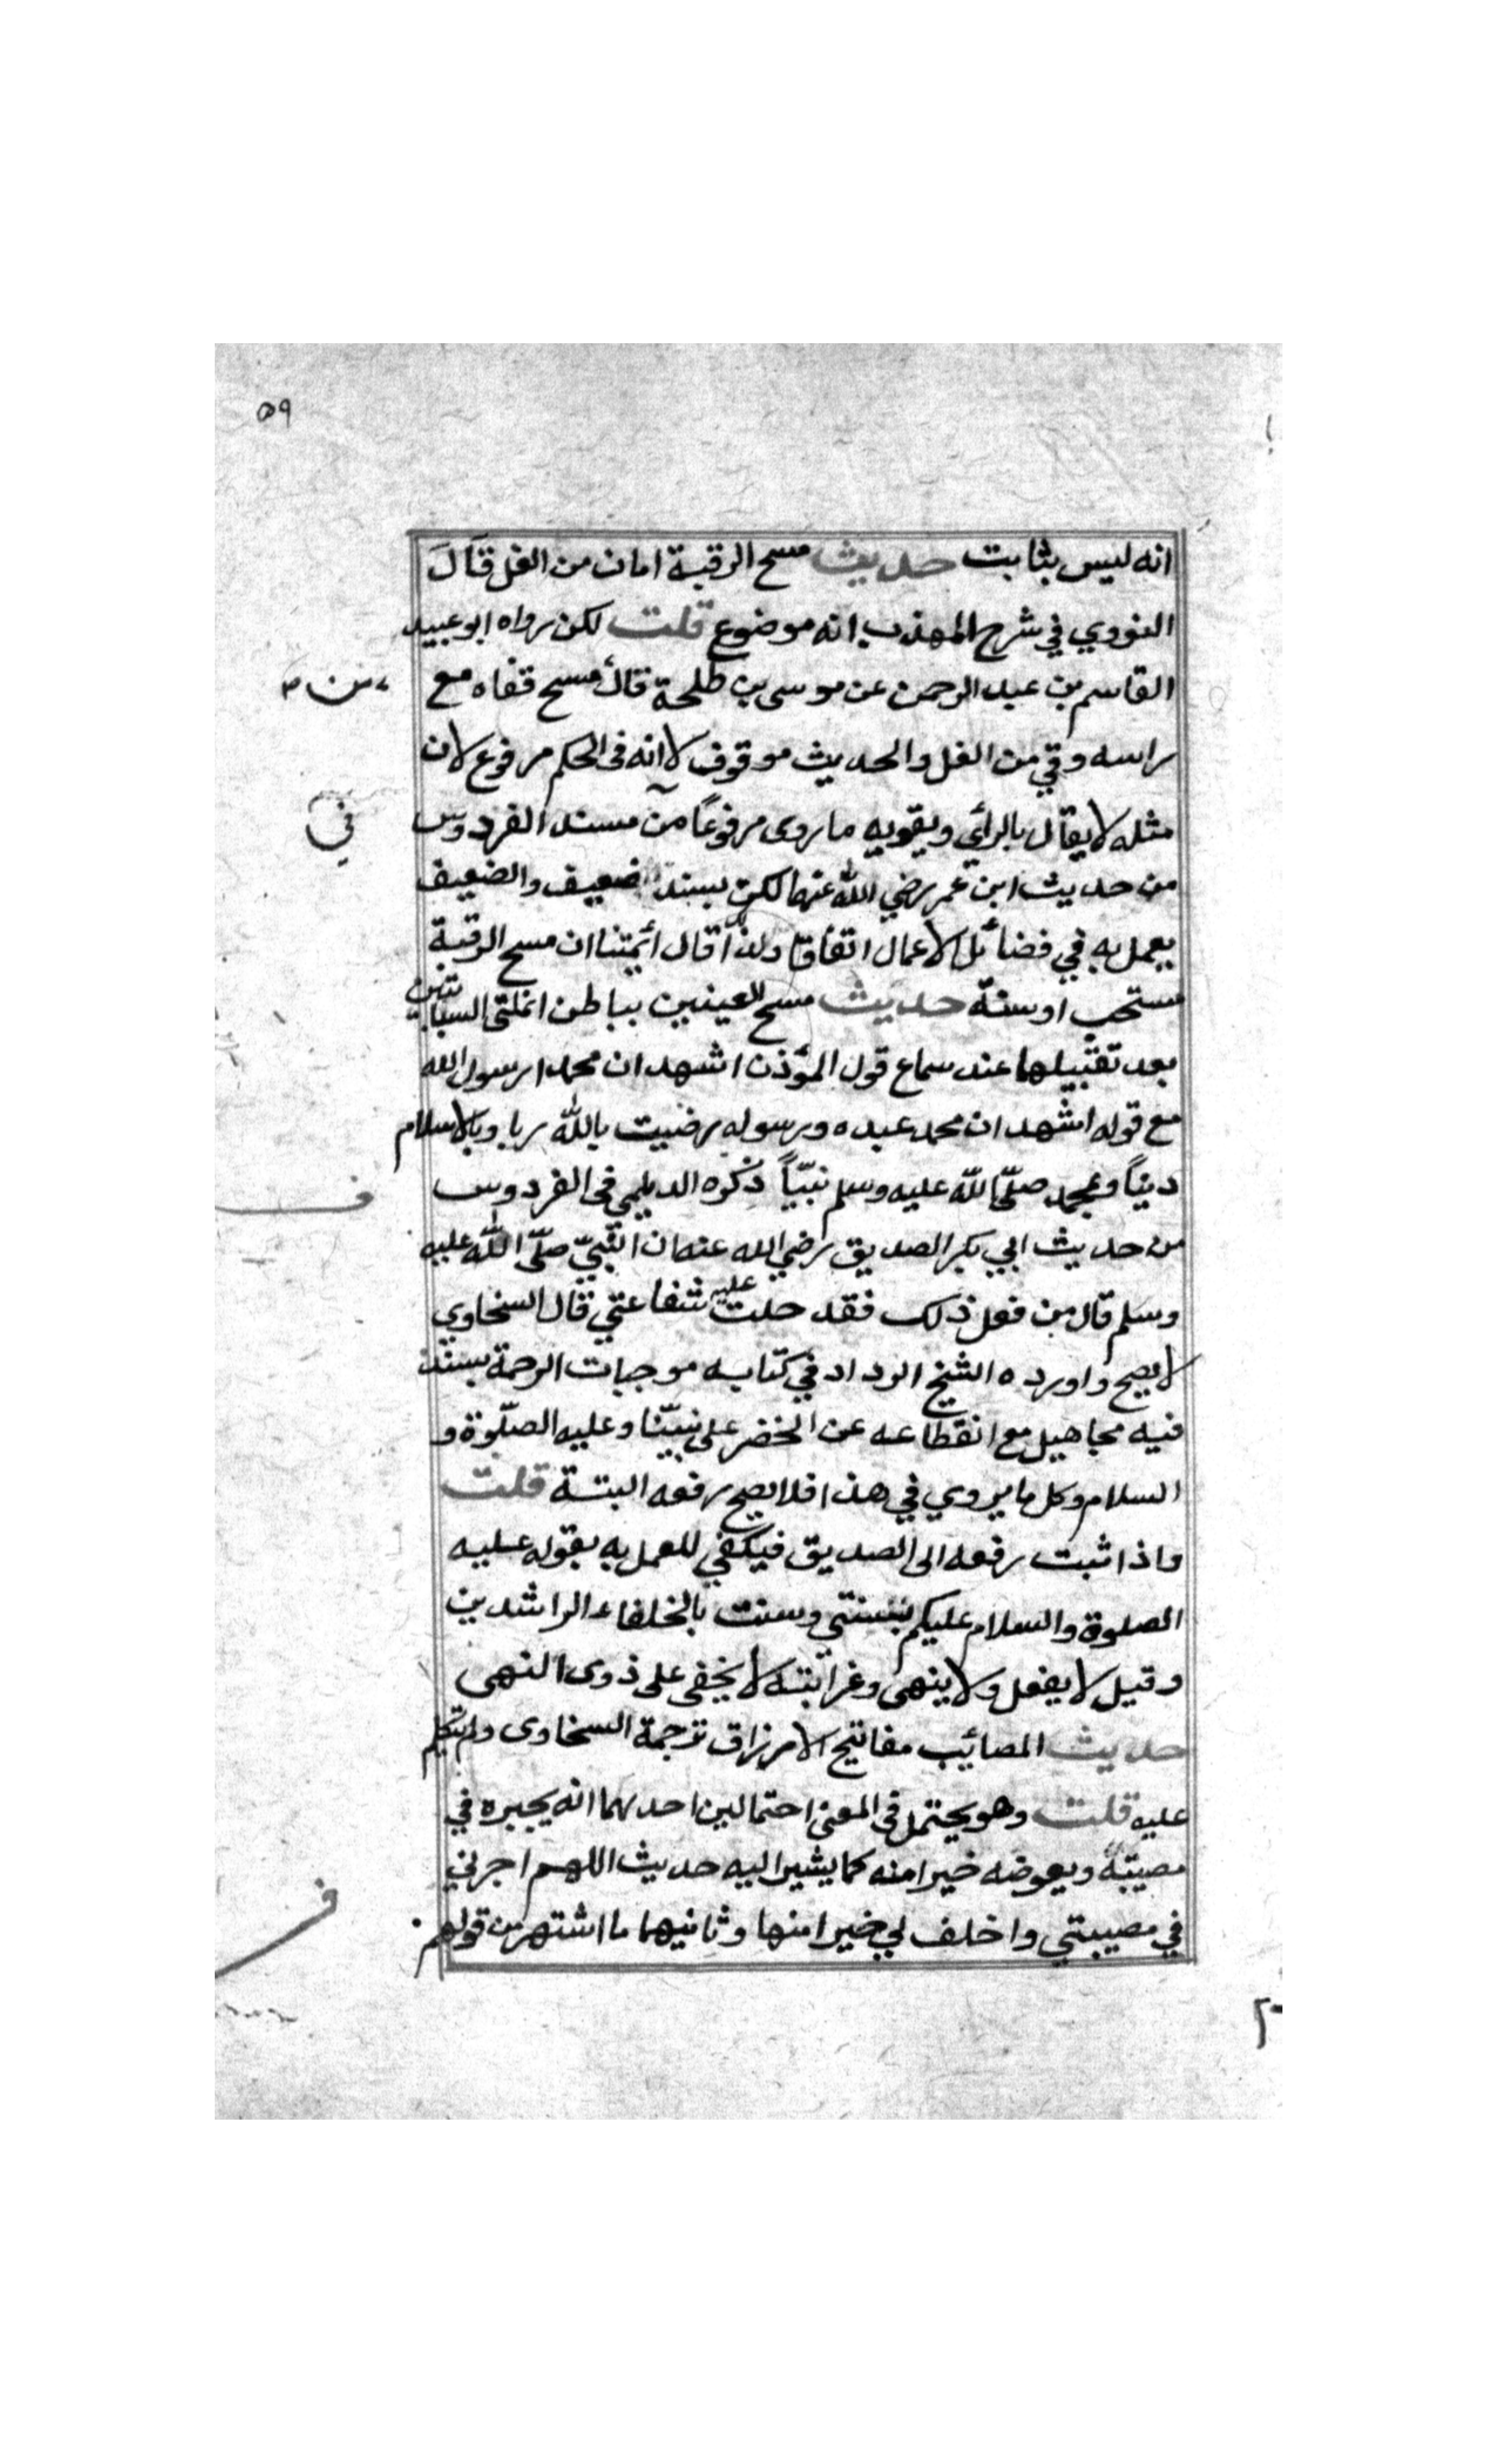 ٥٩
انه ليس بثابت حديث مسح الرقبة امان من الغل قال
النووي في شرح المهذب انه موضوع قلت لكن رواه ابو عبيد
القاسم بن عبد الرحمن عن موسى بن طلحة قال مسح قفاه مع
من
راسه وقي من الغل والحديث موقوف لا انه فى الحكم مرفوع لان
مثله لا يقال بالرأي ويقويه ما روى مرفوعاً من مسند الفردوس
في
من حديث ابن عمر رضي الله عنهما لكن بسند ضعيف والضعيف
يعمل به في فضائل الاعمال اتفاقا ولذا قال أئمتنا ان مسح الرقبة
مستحب او سنة حديث مسح العينين بباطن انملتى السبابتين
بعد تقبيلهما عند سماع قول المؤذن اشهد ان محمدا رسول الله
مع قوله اشهد ان محمد عبده ورسوله رضيت بالله ربا وبالاسلام
ديناً وبمحمد صلّى الله عليه وسلم نبيّاً ذكره الديلمي فى الفردوس
من حديث ابي بكر الصديق رضي الله عنه ان النّبيّ صلّى اللّه عليه
وسلم قال من فعل ذلك فقد حلت عليه شفاعتي قال السخاوي
لا يصح واورده الشيخ الرداد في كتابه موجبات الرحمة بسند
فيه مجاهيل مع انقطاعه عن الخضر على نبيّنا وعليه الصلّوة و
السلام وكل ما يروي في هذا فلا يصح رفعه البتة قلت
واذا ثبت رفعه الى الصديق فيكفي للعمل به بقوله عليه
الصلوة والسلام عليكم بسنتي وسنت بالخلفاء الراشدين
وقيل لا يفعل ولا ينهى وغرابته لا يخفى على ذوى النهى
حديث المصائب مفاتيح الارزاق ترجمة السخاوى ولم يتكلم
عليه قلت وهو يحتمل فى المعنى احتمالين احدهما انه يجبره في
مصيبة ويعوضه خيرا منه كما يشير اليه حديث اللهم اجرني
في مصيبتي واخلف لي خيرا منها وثانيهما ما اشتهر من قولهم